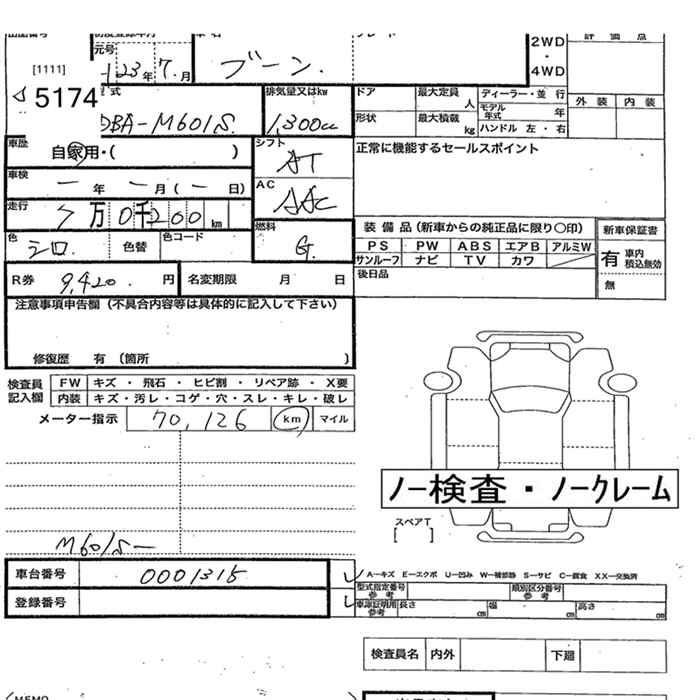 元号
2WD
・
4WD
評 価 点
[1111]
23年 7月
ブーン.
5174
型式
DBA-M601S.
排気量又はkw
1,300cc
ドア
最大定員
人
ディーラー・並 行
モデル
年式
年
ハンドル 左・右
形状
最大積載
kg
外 装
内 装
車歴
自家用・(  )
シフト
AT
正常に機能するセールスポイント
車検
ー 年 ー 月(ー 日)
AC
AAC
走行
7万0千200km
燃料
G.
装 備 品(新車からの純正品に限り〇印)
新車保証書
色
シロ.
色替
色コード
PS
PW
ABS
エアB
アルミW
有
車内
積込無効
サンルーフ
ナビ
TV
カワ
無
R券
9,420.
円
名変期限
月
日
後日品
注意事項申告欄(不具合内容等は具体的に記入して下さい)
修復歴 有 (箇所 )
検査員
記入欄
FW
キズ・飛石・ヒビ割・リペア跡・X要
内装
キズ・汚レ・コゲ・穴・スレ・キレ・破レ
メーター指示
70,126
km
マイル
ノー検査・ノークレーム
スペアT
[ ]
M601S-
車台番号
0001315
登録番号
A-キズ E-エクボ U-凹み W-補修跡 S-サビ C-腐食 XX-交換済
型式指定番号
参考
類別区分番号
参考
車庫証明用
参考
長さ
cm
幅
cm
高さ
cm
検査員名
内外
下廻
MEMO